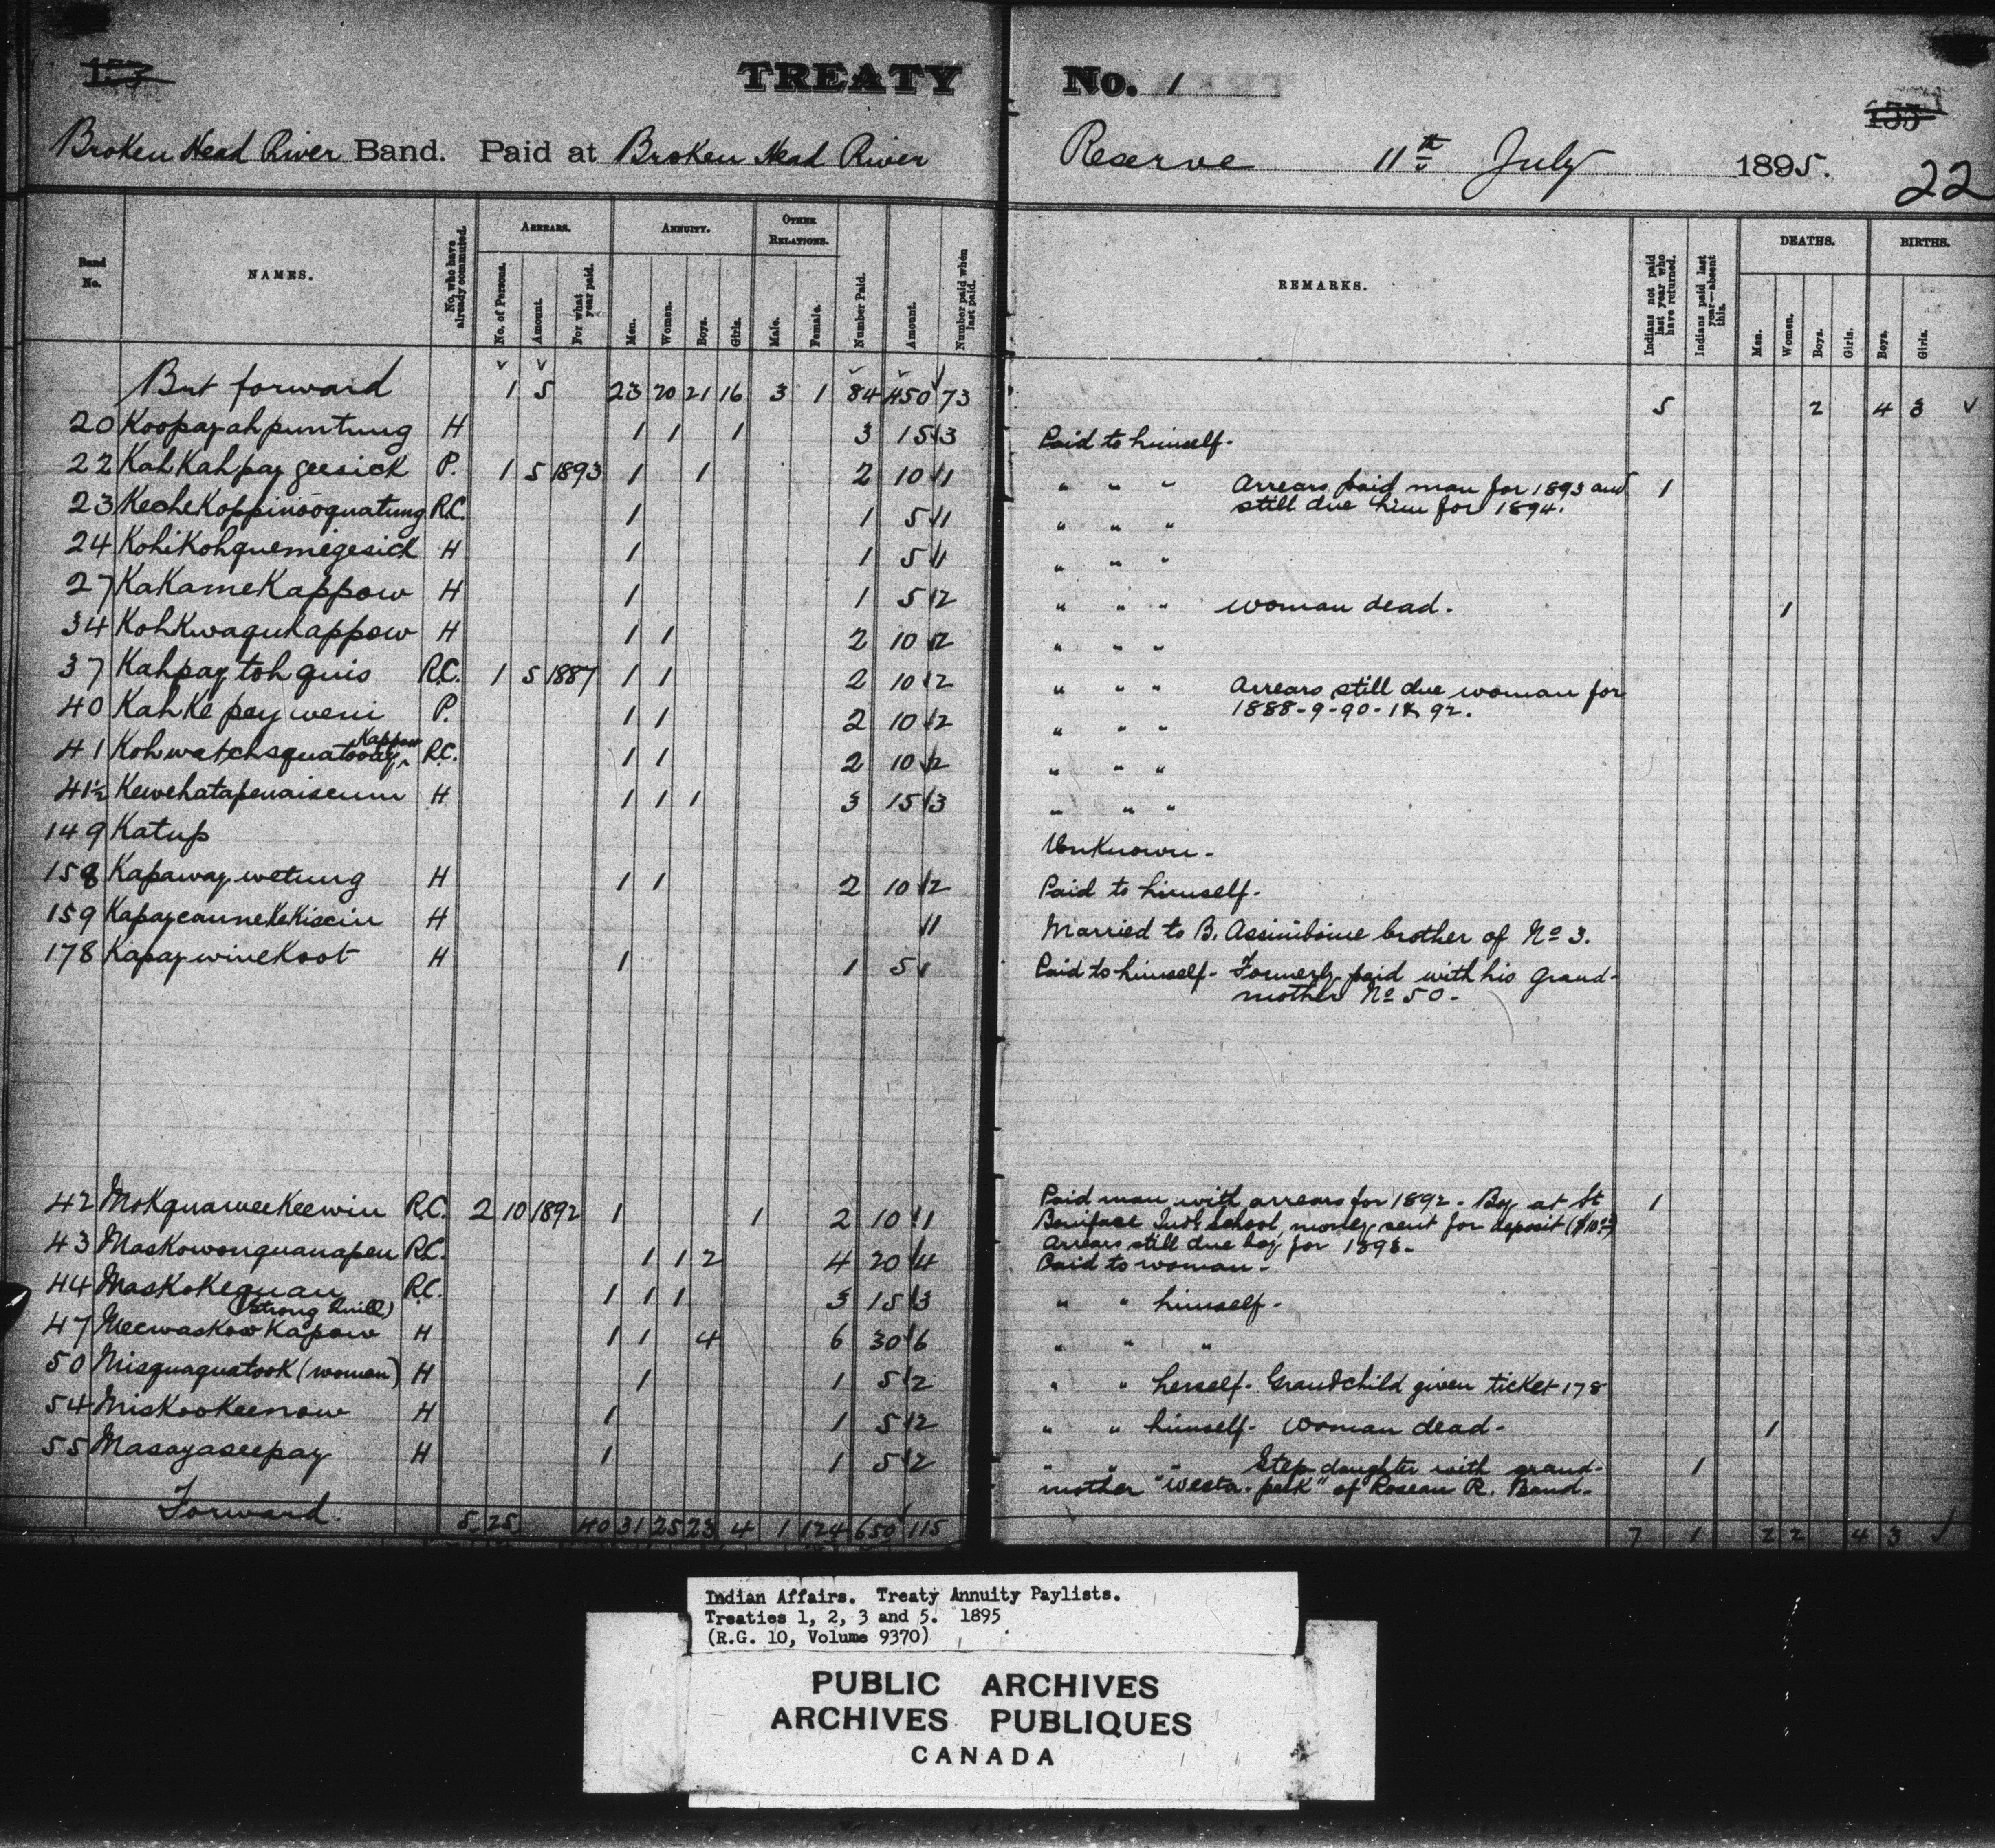 157 TREATY No. 1 155
Broken Head River Band. Paid at Broken Head River Reserve 11th July 1895. 22
Band No. NAMES. No. who have already commuted. ARREARS. ANNUITY. OTHER RELATIONS. Number Paid. Amount. Number paid when last paid. REMARKS. Indians not paid last year who have returned. Indians paid last year—absent this. DEATHS. BIRTHS.
No. of Persons. Amount. For what year paid. Men. Women. Boys. Girls. Male. Female. Men. Women. Boys. Girls. Boys. Girls.
But forward 1 5 23 20 21 16 3 1 84 450 73 5 2 4 3 ✓
20 Koopayahpuntung H 1 1 1 3 15 3 Paid to himself.
22 KahKahpaygeesick P. 1 5 1893 1 1 2 10 1 " " " Arrears paid man for 1893 and 1
still due him for 1894.
23 KecheKoppinooquatung R.C. 1 1 5 1 " " "
24 Kohikohquemegesick H 1 1 5 1 " " "
27 KaKameKappow H 1 1 5 2 " " " woman dead. 1
34 KohKwaqukappow H 1 1 2 10 2 " " "
37 Kahpaytohquis R.C. 1 5 1887 1 1 2 10 2 " " " Arrears still due woman for
1888-9-90-1 & 92.
40 KahKepayweni P. 1 1 2 10 2 " " "
Kappow
41 R.C. 1 1 2 10 2 " " "
41½ Kewehatapenaiseum H 1 1 1 3 15 3 " " "
149 Katup Unknown.
158 Kapawaywetung H 1 1 2 10 2 Paid to himself.
159 H 1 Married to B. Assiniboine brother of No 3.
178 KapaywineKoot H 1 1 5 1 Paid to himself. Formerly paid with his grand-
mother No 50.
42 MoKquaweeKeewin R.C. 2 10 1892 1 1 2 10 1 Paid man with arrears for 1892. Boy at St 1
Boniface Indl School, money sent for deposit ($10.00)
Arrears still due boy for 1893.
43 Maskowonquanapen R.C. 1 1 2 4 20 4 Paid to woman.
44 MasKoKequan R.C. 1 1 1 3 15 3 " " himself.
(Strong Quill)
47 MeewasKowKapow H 1 1 4 6 30 6 " " "
50 Misquaquatook (woman) H 1 1 5 2 " " herself. Grandchild given ticket 178
54 MisKooKeenow H 1 1 5 2 " " himself. Woman dead. 1
55 Masayaseepay H 1 1 5 2 " " " Step-daughter with grand- 1
mother "Westa.peek" of Roseau R. Band.
Forward. 5 25 40 31 25 23 4 1 124 650 115 7 1 2 2 4 3 ✓
Indian Affairs. Treaty Annuity Paylists.
Treaties 1, 2, 3 and 5. 1895
(R.G. 10, Volume 9370)
PUBLIC ARCHIVES
ARCHIVES PUBLIQUES
CANADA